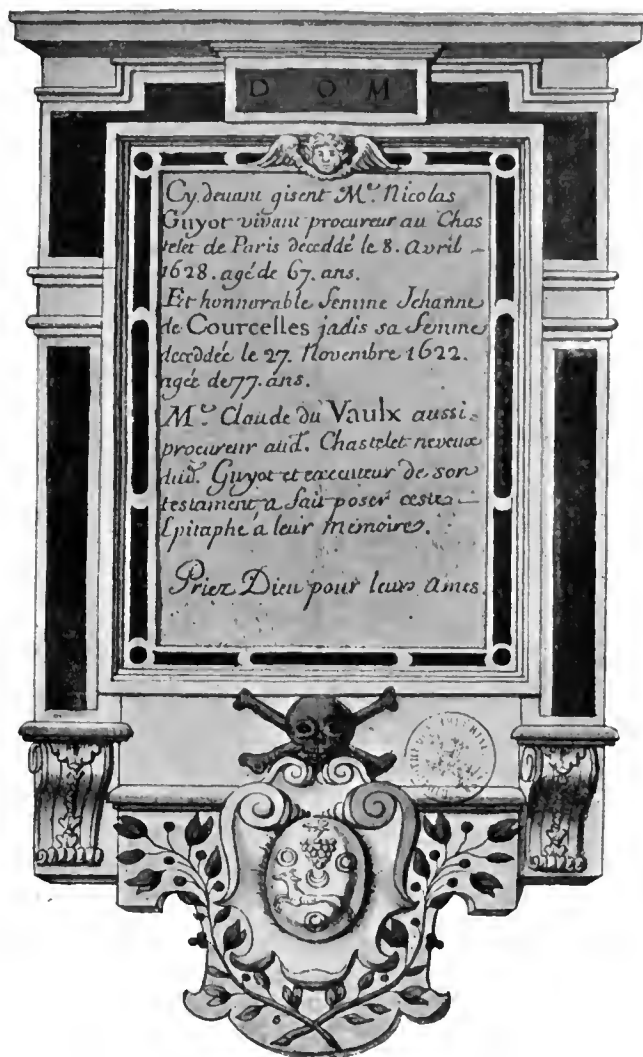 D O M
Cy devant gisent M.e Nicolas
Guyot vivant procureur au Chas
telet de Paris deceddé le 8. Avril
1628. agé de 67. ans.
Et honnorable femme Jehanne
de Courcelles jadis sa femme
deceddée le 27. Novembre 1622.
agée de 77. ans.
M.e Claude du Vaulx aussi
procureur aud. Chastelet neveux
dud. Guyot et executeur de son
testament a fait poser ceste
Epitaphe a leur memoire.
Priez Dieu pour leurs ames.